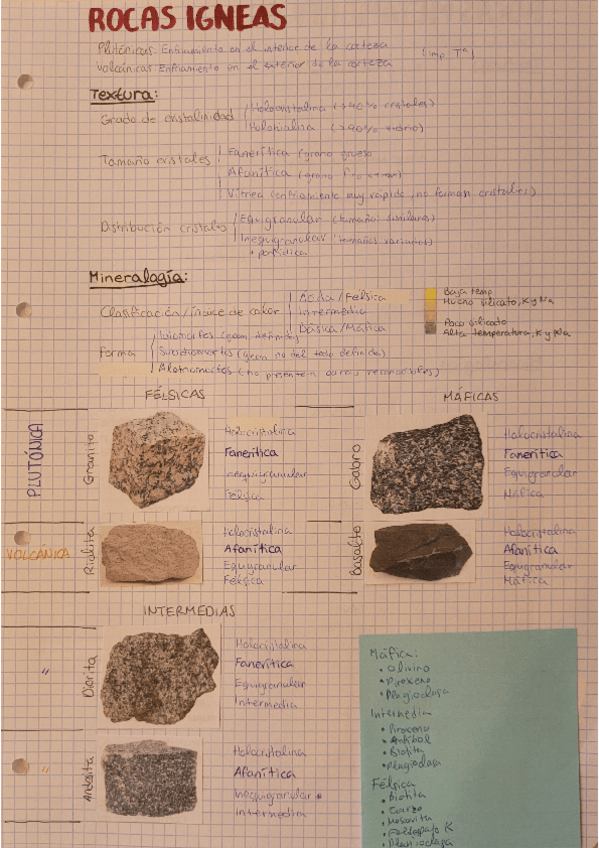 ROCAS IGNEAS
Plutónicas: Enfriamiento en el interior de la corteza
Volcánicas Enfriamiento en el exterior de la corteza
(imp. Tª)
Textura:
Grado de cristalinidad
Holocristalina (>90% cristales)
Holohialina (>90% vidrio)
Tamaño cristales
Fanerítica (grano grueso
Afanítica (grano fino
Vítrea (enfriamiento muy rápido, no forman cristales)
Distribución cristales
Equigranular (tamaños similares)
Inequigranular (tamaños variados)
• porfídica
Mineralogía:
Clasificación/Índice de color
Ácida/Félsica
Intermedia
Básica/Máfica
Baja temp
Mucho silicato, K y Na
Poco silicato
Alta temperatura, K y Na
Forma
Idiomorfos (geom definida)
Subidiomorfos (geom no del todo definida)
Alotriomorfos (no presentan caras reconocibles)
FÉLSICAS
MÁFICAS
PLUTÓNICA
Granito
Holocristalina
Fanerítica
Inequigranular
Félsica
Gabro
Holocristalina
Fanerítica
Equigranular
Máfica
VOLCÁNICA
Riolita
Holocristalina
Afanítica
Equigranular
Félsica
Basalto
Holocristalina
Afanítica
Equigranular
Máfica
INTERMEDIAS
"
Diorita
Holocristalina
Fanerítica
Equigranular
Intermedia
"
Andesita
Holocristalina
Afanítica
Inequigranular
Intermedia
Máfica:
• Olivino
• Piroxeno
• Plagioclasa
Intermedia
• Piroxeno
• Anfibol
• Biotita
• Plagioclasa
Félsica
• Biotita
• Cuarzo
• Moscovita
• Feldespato K
• Plagioclasa